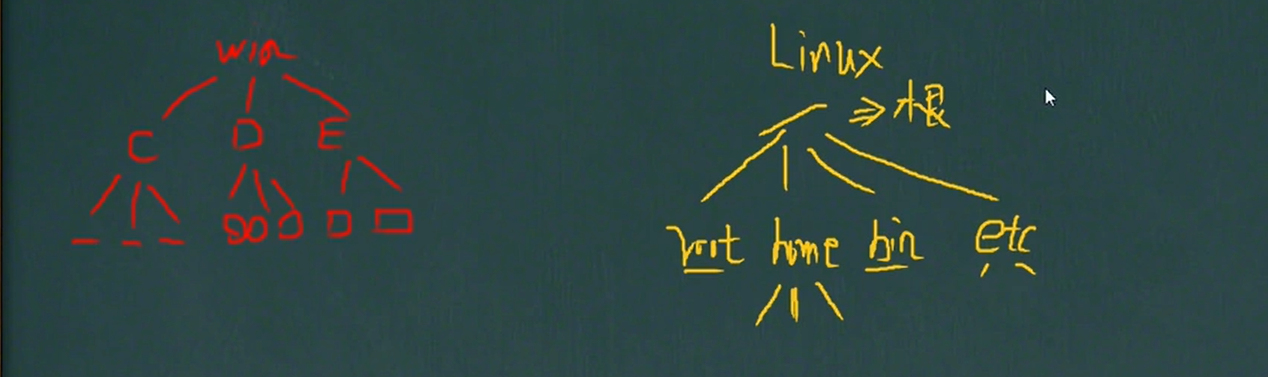 win
C D E
Linux
/ ⇒根
root home bin etc